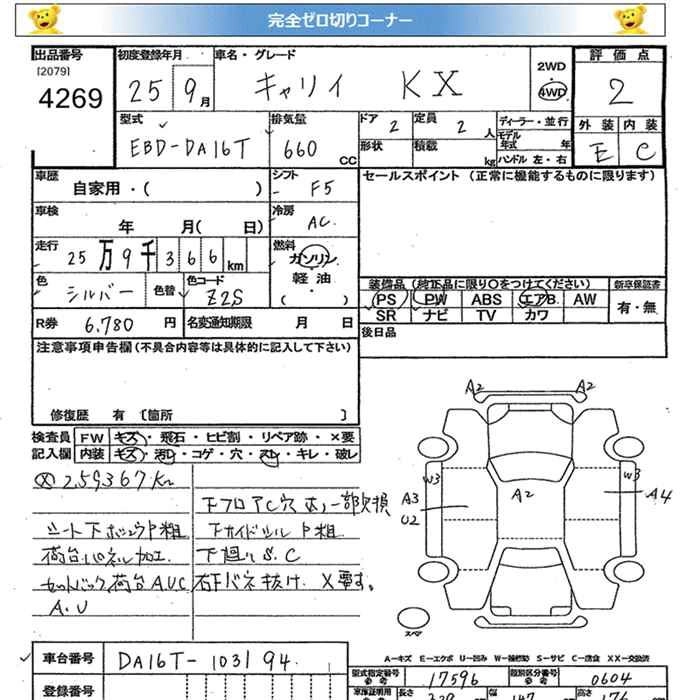 完全ゼロ切りコーナー
出品番号 初度登録年月 車名・グレード 評価点
[2079] 2WD
4269 25 9月 キャリイ KX 4WD 2
型式 排気量 ドア 定員 ディーラー・並行 外装 内装
EBD-DA16T 660 CC 2 2人 モデル年式 年 E C
形状 積載 kg ハンドル 左・右
車歴 シフト セールスポイント (正常に機能するものに限ります)
自家用・( ) F5
車検 冷房
年 月( 日) AC
走行 燃料
25万9千366km ガソリン
軽油
色 色替 色コード ( ・ )
シルバー Z2S
装備品 (純正品に限り○をつけてください) 新車保証書
PS PW ABS エアB. AW 有・無
SR ナビ TV カワ
R券 6.780円 名変通知期限 月 日
後日品
注意事項申告欄 (不具合内容等は具体的に記入して下さい)
修復歴 有 [箇所 ]
検査員 FW キズ・飛石・ヒビ割・リペア跡・×要
記入欄 内装 キズ・汚レ・コゲ・穴・スレ・キレ・破レ
259367Km
下フロアC穴あり一部欠損
シート下
荷台パネル加工. 下廻りS.C
セットバック,荷台A.U.C
A.U
A2 A2
W3 W3
A3 A2 A4
U2
スペア
A-キズ E-エクボ U-凹み W-補修跡 S-サビ C-腐食 XX-交換済
車台番号 DA16T-103194
型式指定番号 17596 類別区分番号 0604
登録番号 車庫証明用 長さ 幅 高さ